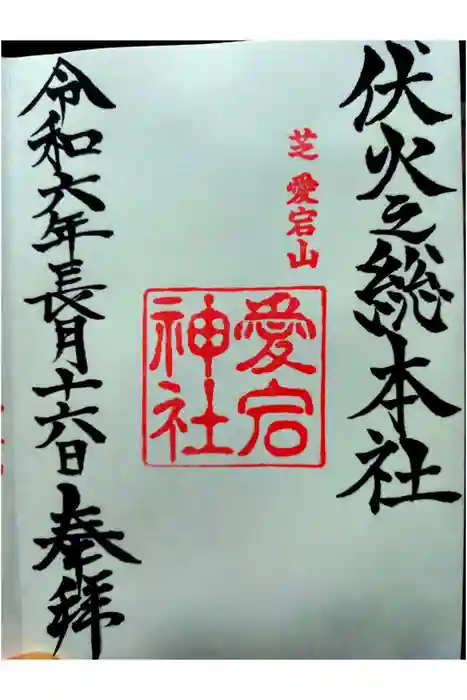 伏火之総本社
芝 愛宕山
愛宕
神社
令和六年長月十六日
奉拝